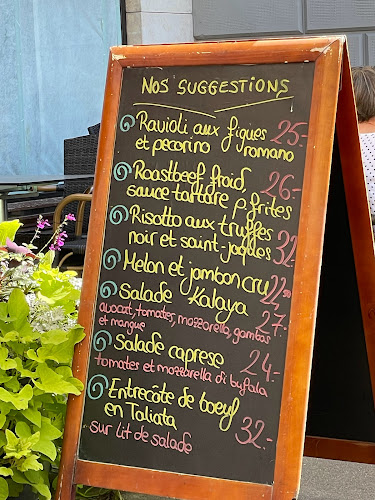 NOS SUGGESTIONS
Ravioli aux figues 25.-
et pecorino romano
Roastbeef froid, 26.-
sauce tartare p. frites
Risotto aux truffes 32.-
noir et saint-jaques
Melon et jambon cru 22.50
Salade Kalaya 27.-
avocat, tomates, mozzarella, gambas
et mangue
Salade caprese 24.-
tomates et mozzarella di bufala
Entrecôte de boeuf
en Taliata 32.-
sur lit de salade